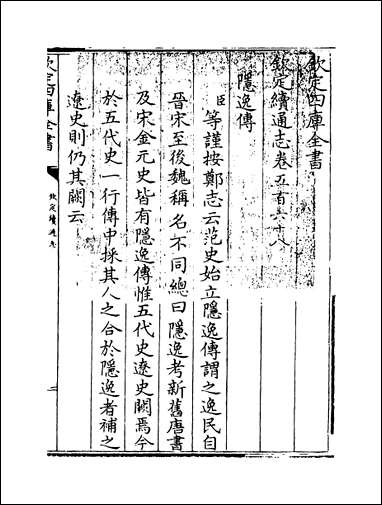 欽定四庫全書
欽定續通志卷五百六十八
隱逸傳
臣等謹按鄭志云范史始立隱逸傳謂之逸民自
晉宋至後魏稱名不同總曰隱逸考新舊唐書
及宋金元史皆有隱逸傳惟五代史遼史闕焉今
於五代史一行傳中採其人之合於隱逸者補之
遼史則仍其闕云
欽定四庫全書
欽定續通志